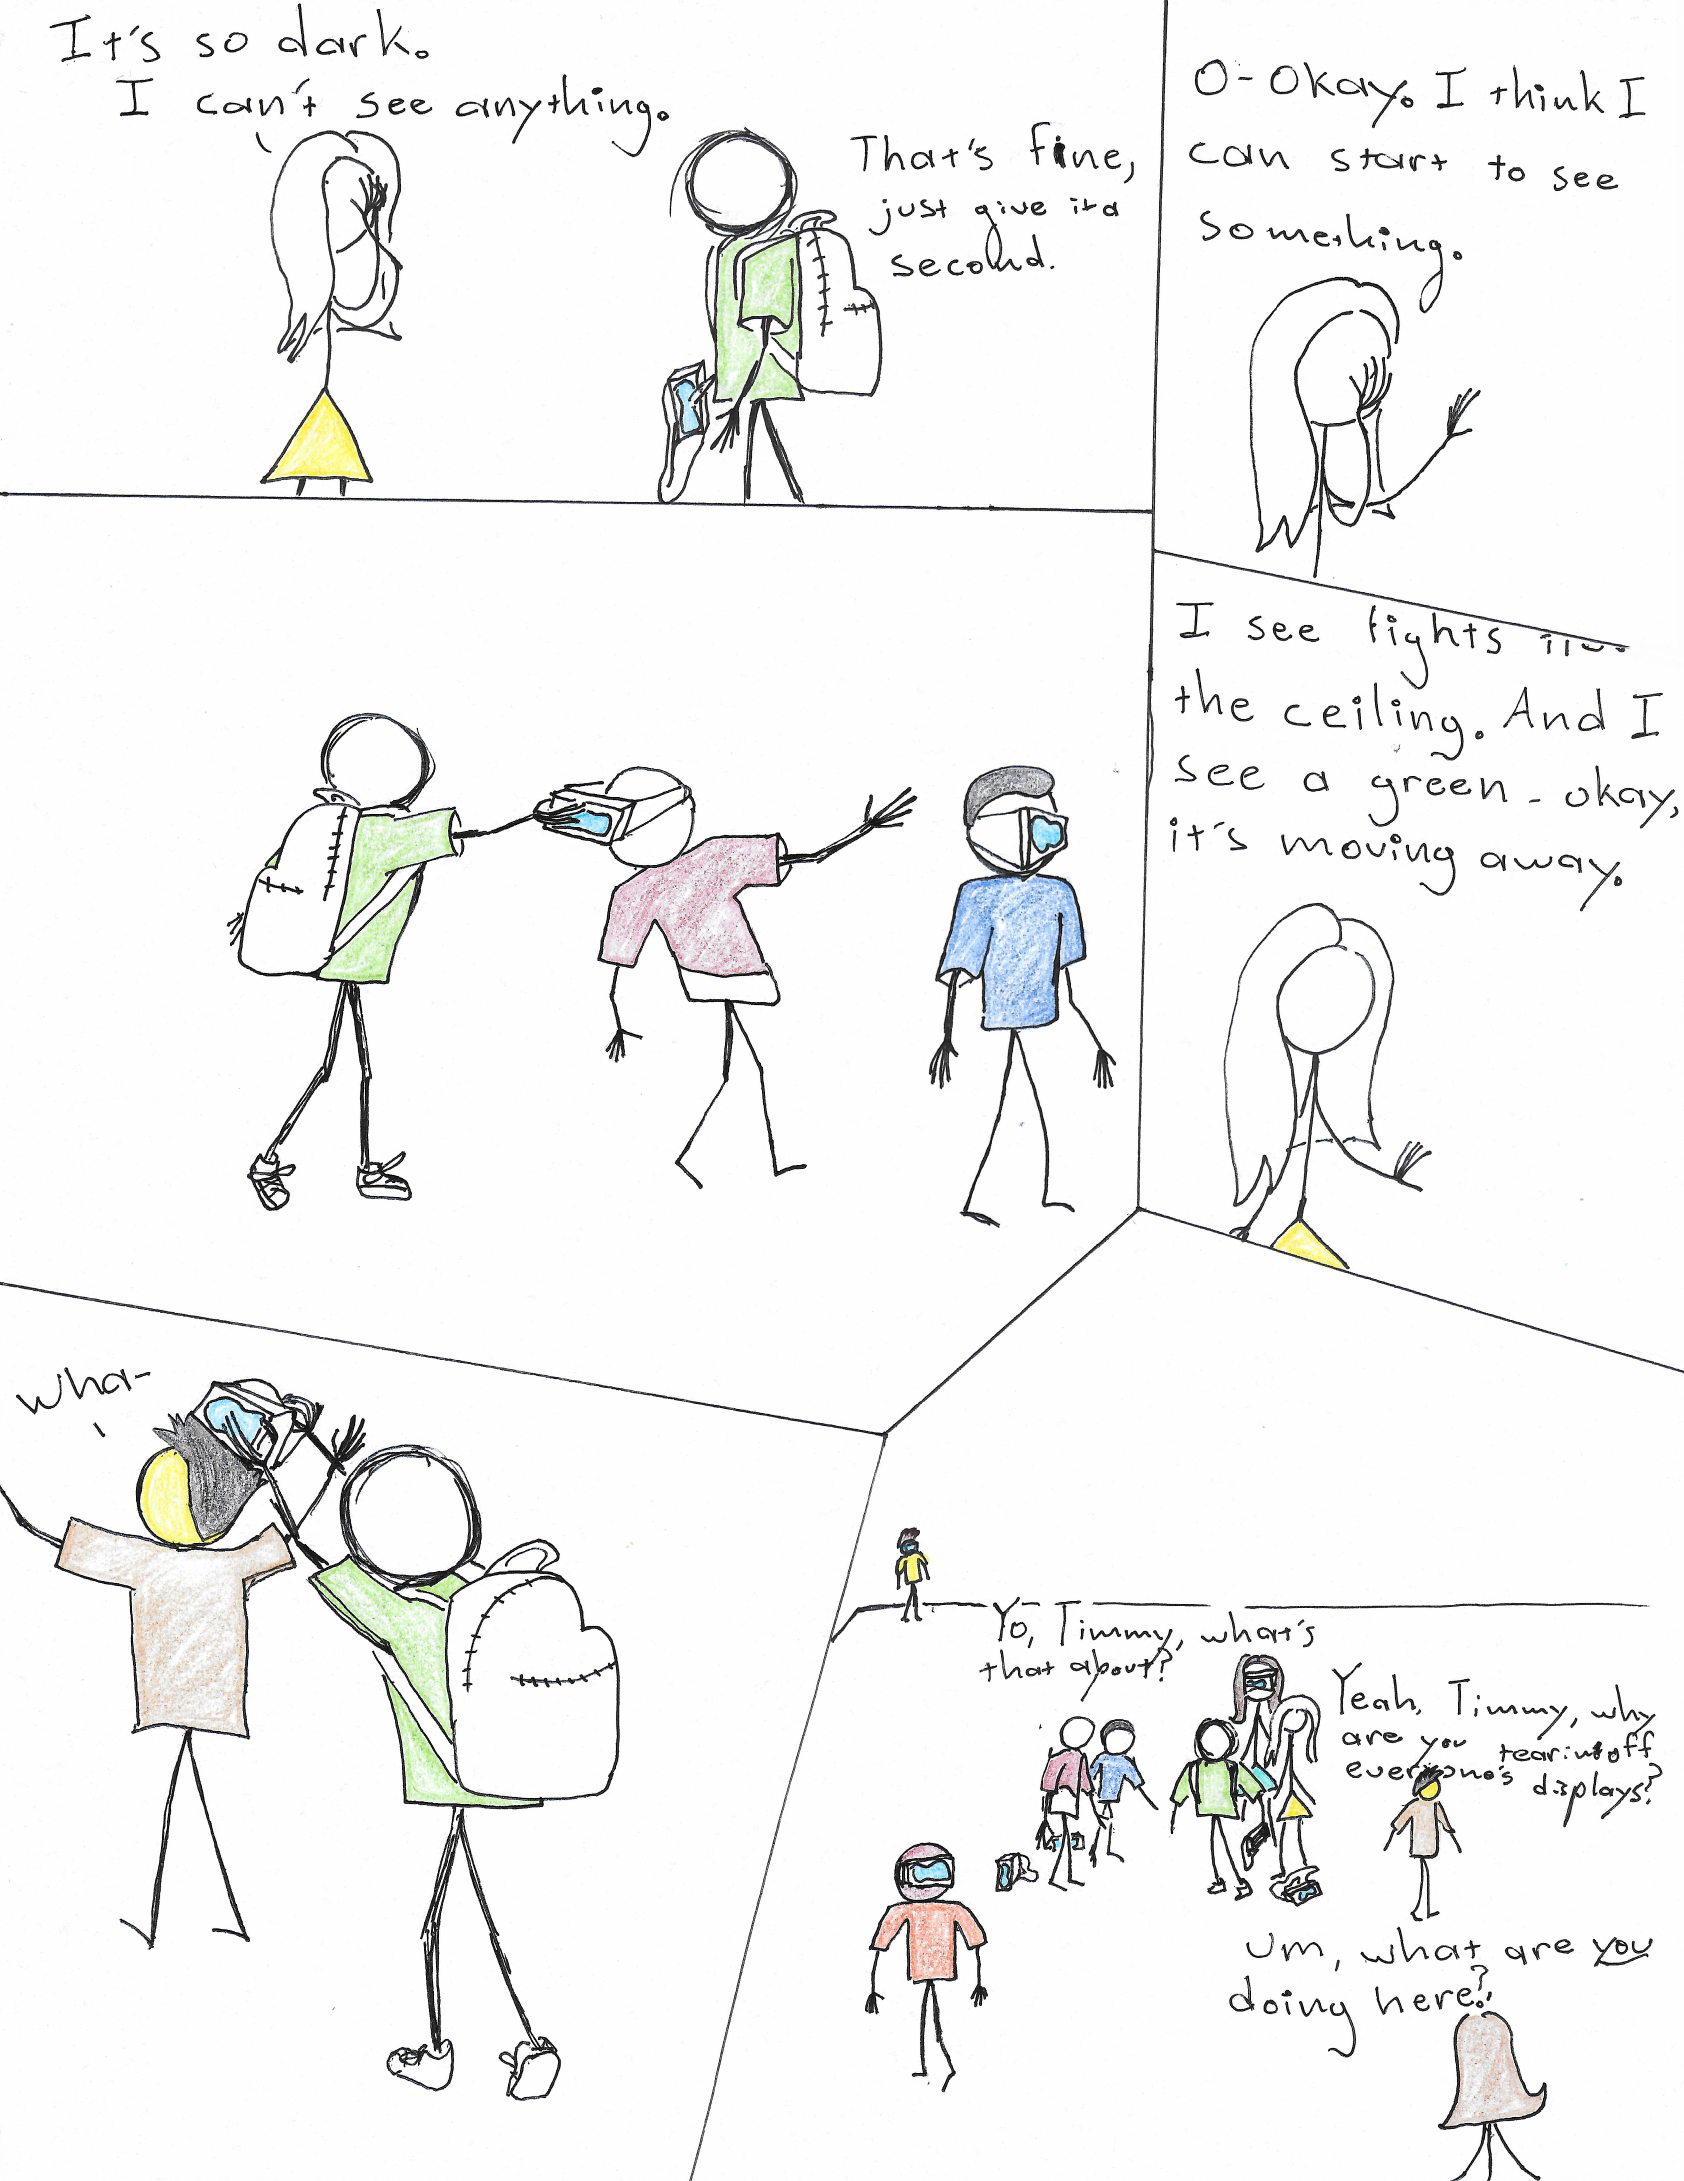 It's so dark.
I can't see anything.
That's fine,
just give it a
second.
O-Okay. I think I
can start to see
something.
I see lights
the ceiling. And I
see a green - okay,
it's moving away.
Wha-
Yo, Timmy, what's
that about?
Yeah, Timmy, why
are you tearing off
everyone's displays?
Um, what are you
doing here?